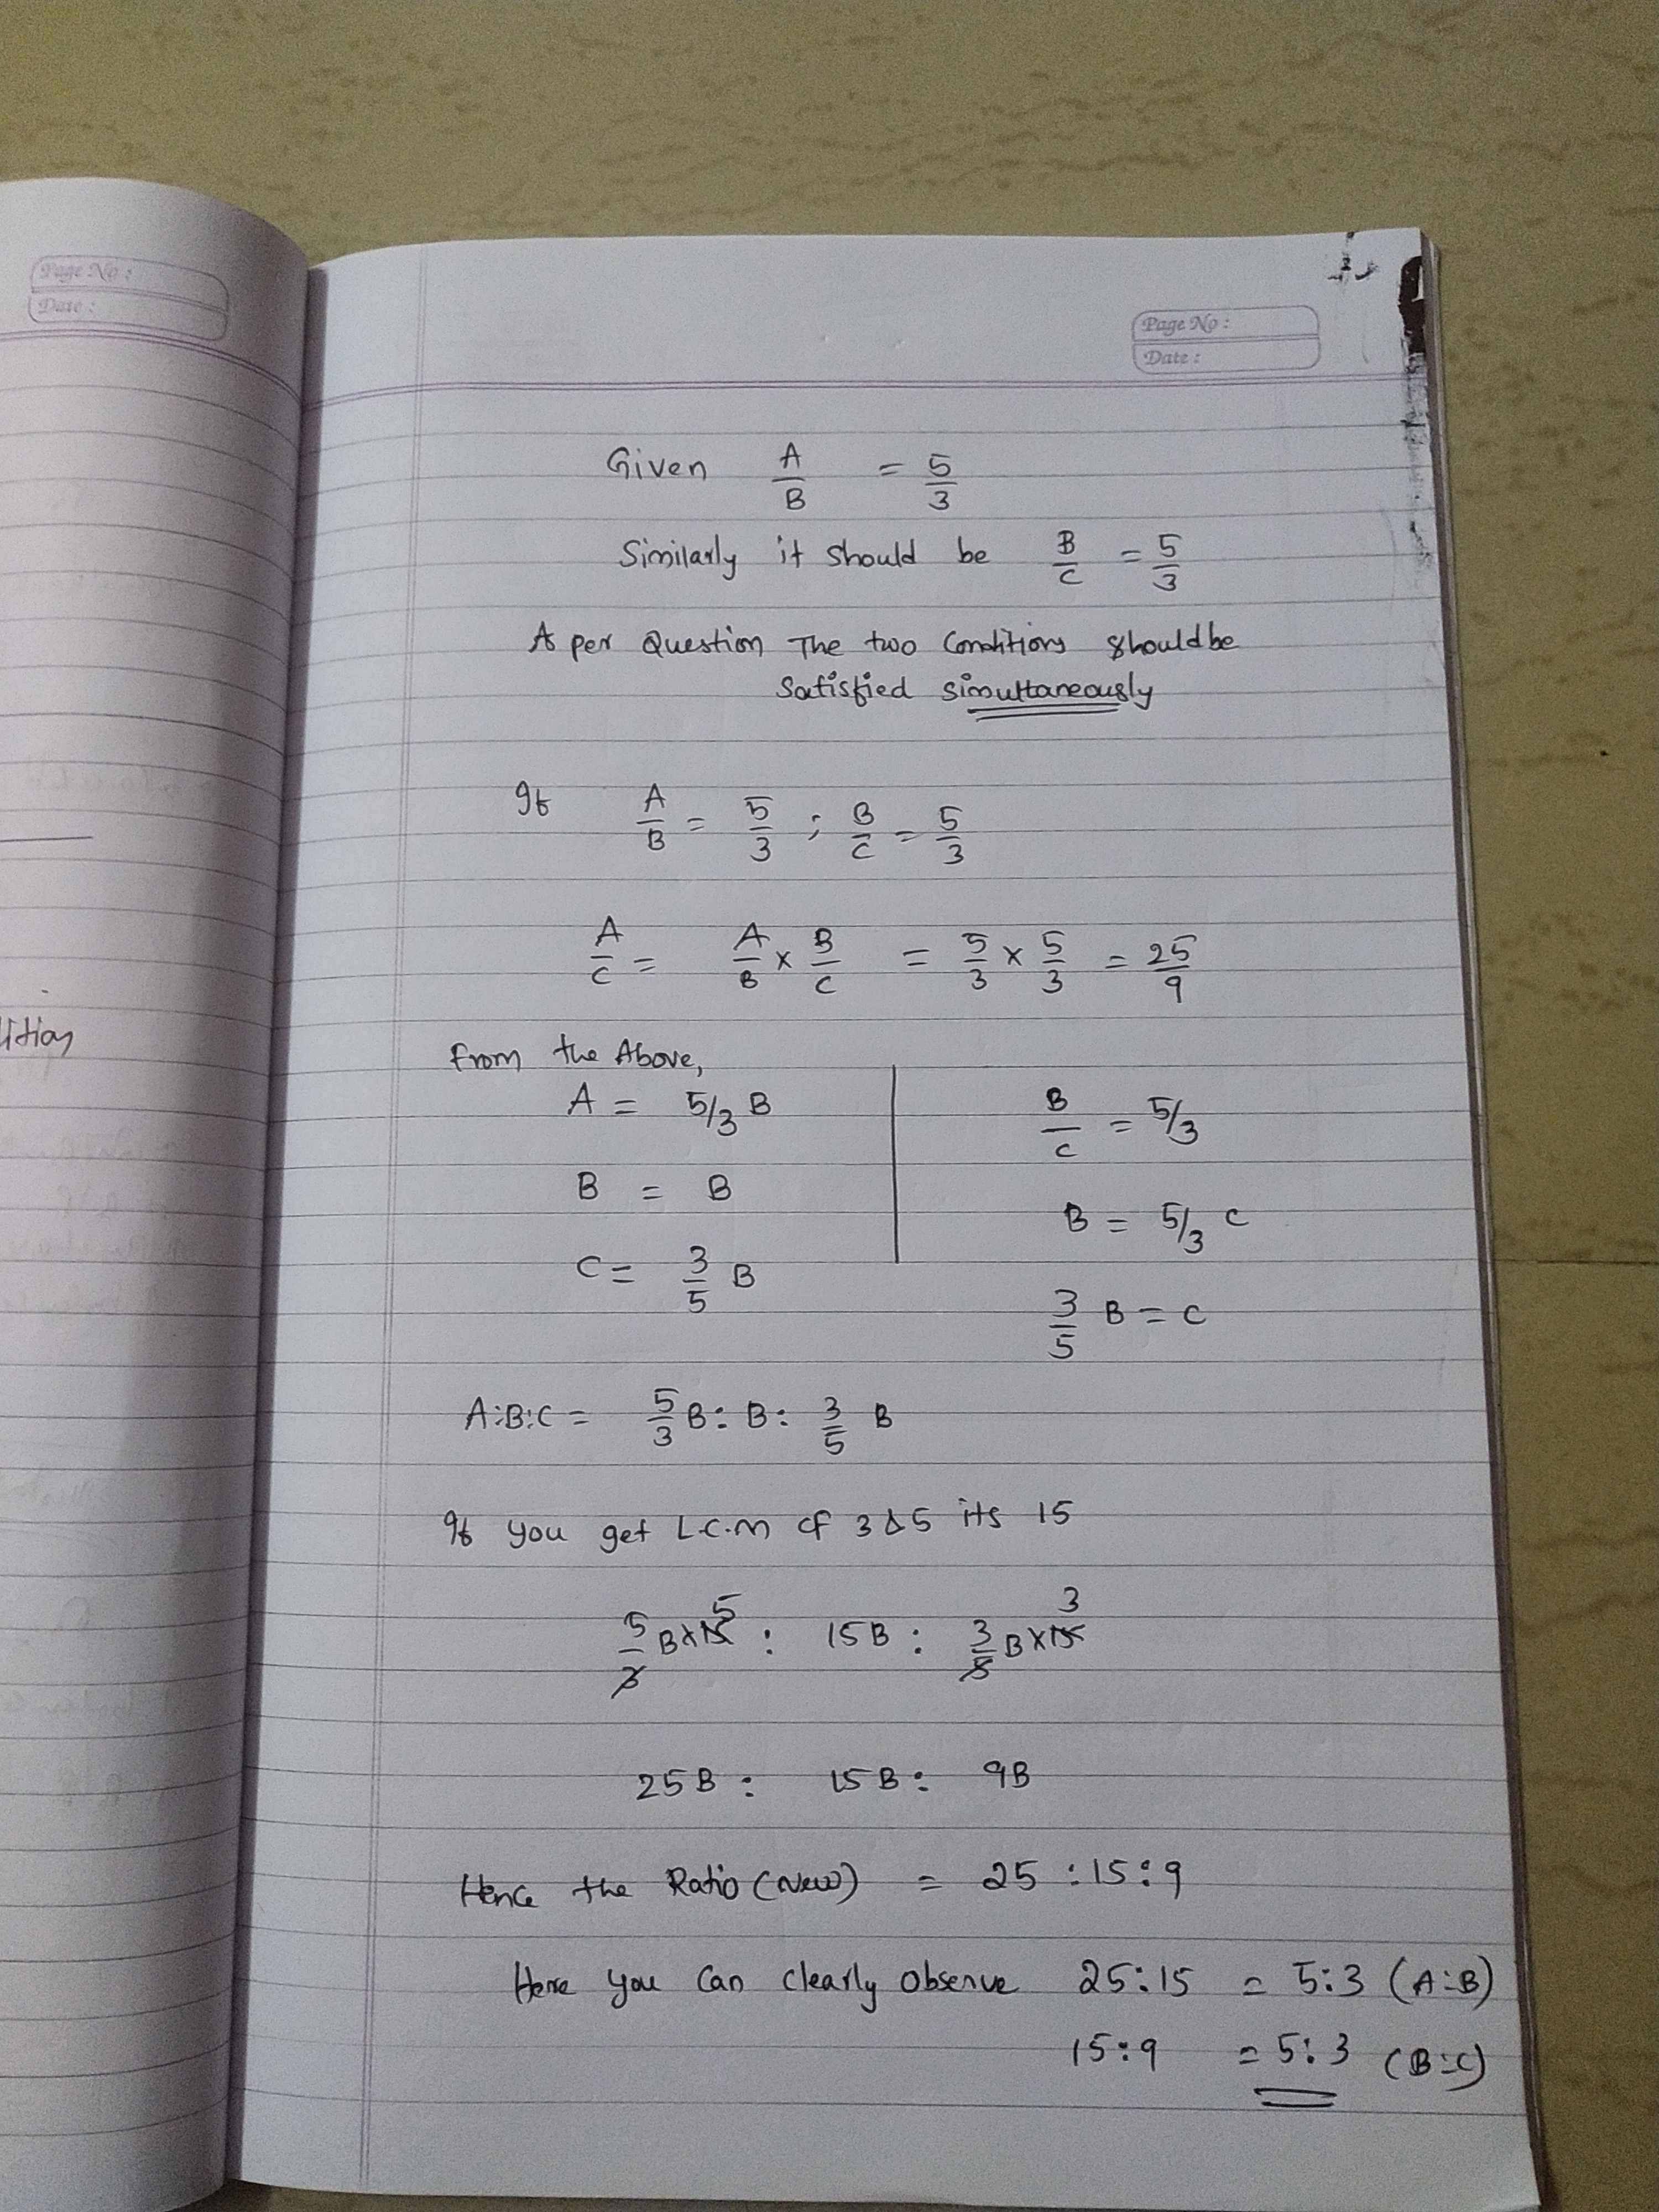 Page No :
Date :
Page No :
Date :
Given A/B = 5/3
Similarly it should be B/C = 5/3
As per Question The two Conditions should be
Satisfied simultaneously
If A/B = 5/3 ; B/C = 5/3
A/C = A/B × B/C = 5/3 × 5/3 = 25/9
From the Above,
A = 5/3 B
B = B
C = 3/5 B
B/C = 5/3
B = 5/3 C
3/5 B = C
A:B:C = 5/3 B : B : 3/5 B
If you get L.C.M of 3 & 5 its 15
5/3 B × 15 5 : 15B : 3/5 B × 15 3
25B : 15B : 9B
Hence the Ratio (New) = 25 : 15 : 9
Here you Can Clearly Observe 25:15 = 5:3 (A:B)
15:9 = 5:3 (B:C)